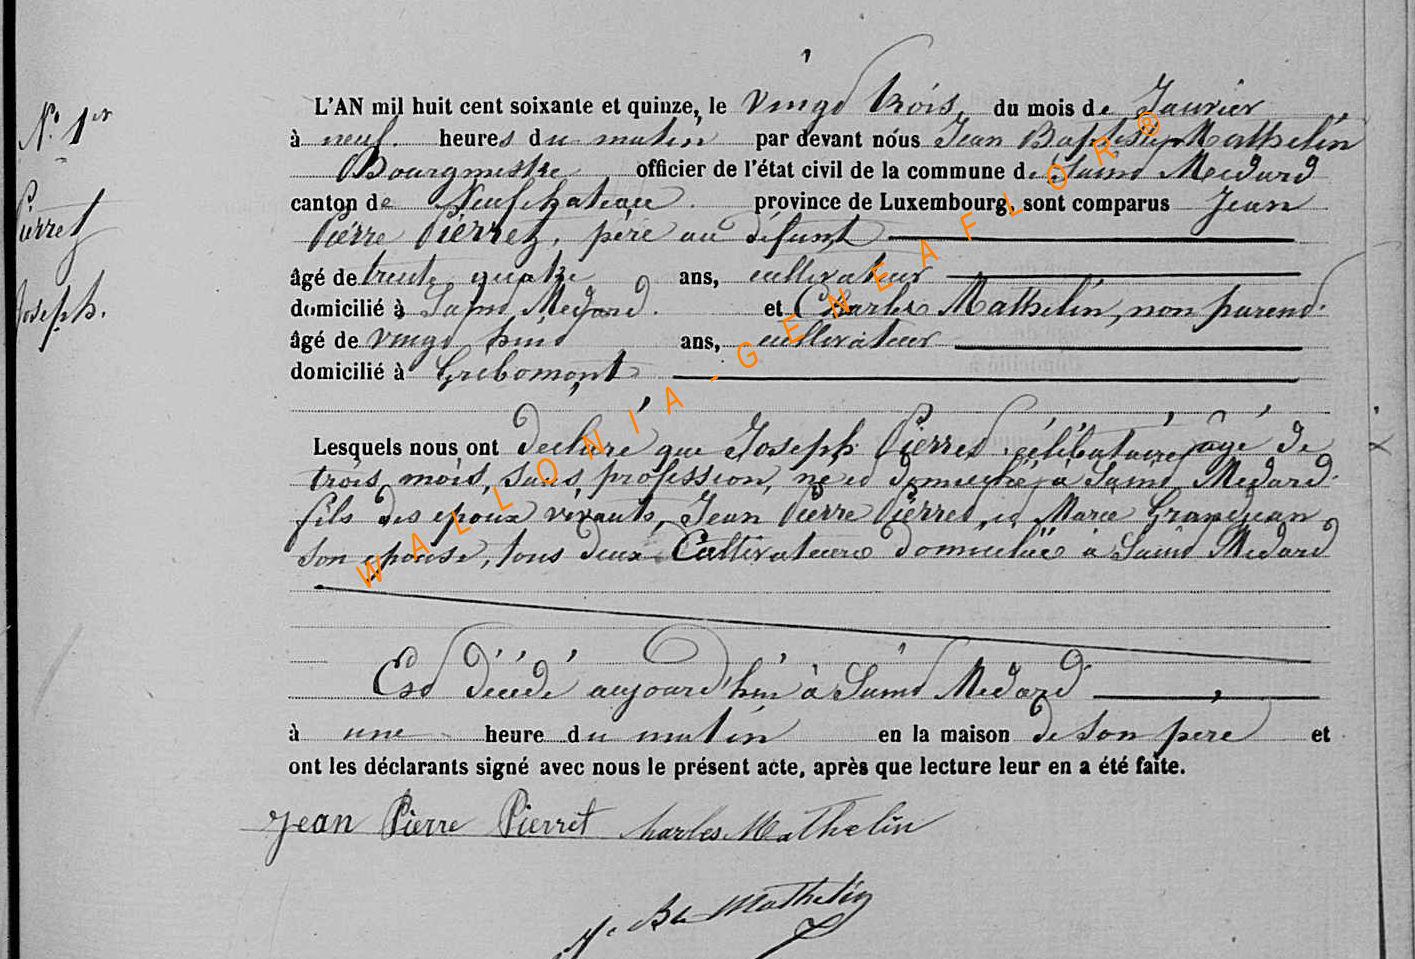 N.° 1er
Pierret
Joseph.
L'AN mil huit cent soixante et quinze, le vingt trois du mois de Janvier
à neuf heures du matin par devant nous Jean Baptiste Mathelin
Bourgmestre officier de l'état civil de la commune de Saint Médard
canton de Neufchateau province de Luxembourg, sont comparus Jean
Pierre Pierret, père au défunt
âgé de trente quatre ans, cultivateur
domicilié à Saint Médard. et Charles Mathelin, non parent
âgé de vingt huit ans, cultivateur
domicilié à Gribomont
Lesquels nous ont déclaré que Joseph Pierret célibataire, âgé de
trois mois, sans profession, né et domicilié à Saint Médard
fils des époux vivants, Jean Pierre Pierret, et Marie Grandjean
son épouse, tous deux Cultivateurs domiciliés à Saint Médard
Est décédé aujourd'hui à Saint Médard
à une heure du matin en la maison de son père et
ont les déclarants signé avec nous le présent acte, après que lecture leur en a été faite.
Jean Pierre Pierret Charles Mathelin
Bte Mathelin
WALLONIA-GENEAFLOR®